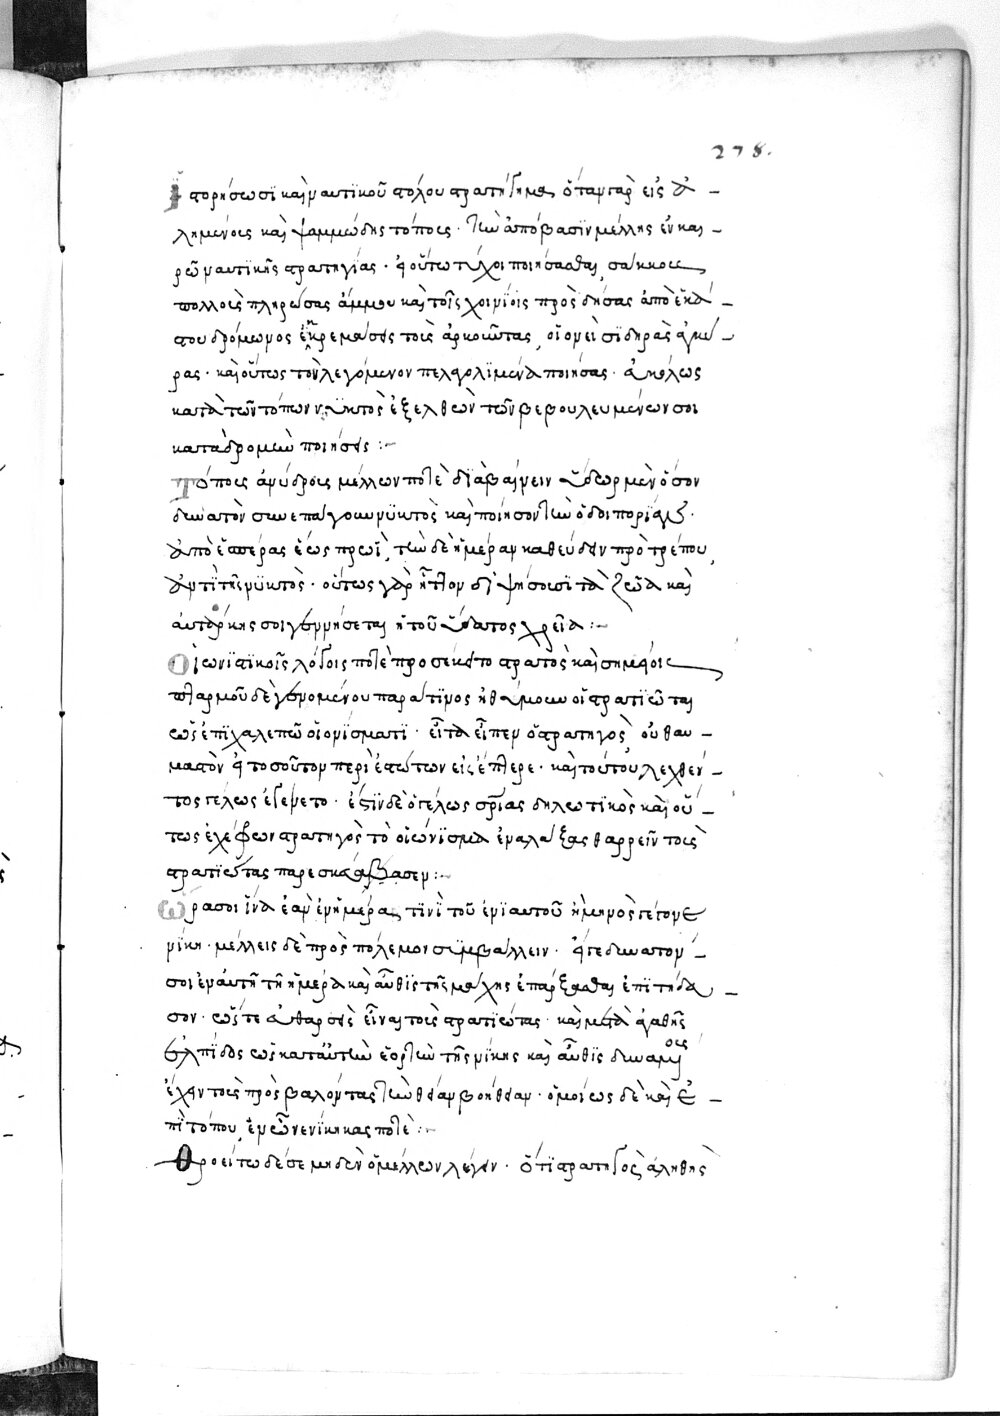 278.
Ἱστορήσωσϊ καὶ ναυτϊκοῦ στόλου στρατήγημα ὅταν γὰρ εἰς ἀ –
λημένοις καὶ ψαμμώδης τόποις · τὴν ἀπόβασϊν μέλλης ἐν και –
ρῶ ναυτικῆς στρατηγίας · οὕτω τύχοι ποιήσασθαι, σάκκους
πολλοὺς πληρώσας ἄμμου καὶ τοῖς χοινΐοις προσδήσας ἀπὸ ἑκά –
στου δρόμωνος ἐκκρεμάσεις τοὺς ἀρκοιῶτας, οἱονεὶ σϊδηρὰς ἀγκύ –
ρας · καὶ οὕτως τὸν λεγόμενον πελαγολϊμένα ποιήσας · ἀκόλως
κατὰ τῶν τόπων νϋκτὸς ἐξελθὼν τῶν βεβουλευμένων σοι
καταδρομὼ ποιήσεις :–
Τόποις ἀνύδροις μέλλων ποτὲ δϊαβαίνειν ὕδωρ μὲν ὅσον
δυνατόν συνεπάγου νϋκτὸς καὶ ποιήσον τὴν ὁδοιπορίαν ·
ἀπὸ ἑσπέρας ἕως πρωΐ, τὴν δὲ ἡμέραν καθεύδειν προτρέπου,
ἀντὶ τῆς νϋκτὸς · οὕτως γὰρ ἧττον διψήσουσϊ τὰ ζῶα καὶ
αὐτάρκης σοι γεννήσεται ἡ τοῦ ὕδατος χρεῖα :–
Οἰωνϊστικοῖς λόγοις ποτὲ προσέκειτο στρατὸς καὶ σημείοις
πταρμοῦ δὲ γενομένου παρά τϊνος ἠθύμουν οἱ στρατϊῶται
ὡς ἐπῒ χαλεπῶ οἰονίσματϊ · εἶτα εἶπεν ὁ στρατηγὸς, οὐ θαυ –
μαστὸν τοσοῦτον περὶ ἑστώτων εἷς ἔπταρε · καὶ τούτου λεχθέν –
τος γέλως ἐγένετο · ἔστϊν δὲ ὁ γέλως σωτηρίας δηλωτϊκὸς καὶ οὕ –
τως ἐχέφρων στρατηγὸς τὸ οἰώνϊσμα ἐναλάξας θαρρεῖν τοὺς
στρατϊώτας παρεσκεύασεν :–
Ὥρα σοι ἵνα ἐὰν ἐν ἡμέρα τϊνῒ τοῦ ἐνϊαυτοῦ ἢ μηνὸς γέγονε
νίκη · μέλλεις δὲ πρὸς πόλεμον σϋμβάλλειν · ἔστε δυνατον –
σοι ἐν αὐτῆ τῆ ἡμέρα καὶ αὖθϊς τῆς μάχης ἐπάρξασθαι ἐπιτήδει –
σον · ὥστε εὐθαρσεῖς εἶναι τοὺς στρατϊώτας · καὶ μετὰ ἀγαθῆς
ἐλπίδος ὡς κατ' αὐτὴν ἑορτὴν τῆς νίκης καὶ αὖθϊς δυναμένους
ἔχειν τοὺς προσβαλόντας τὴν θείαν βοήθειαν · ὁμοίως δὲ καὶ ἐ –
πῒ τόπου, ἐν ὧ νενίκηκας ποτὲ :–
Θροείτω δέ σε μηδὲν ὁ μέλλων λέγειν · ὅτϊ στρατηγὸς ἀληθὴς